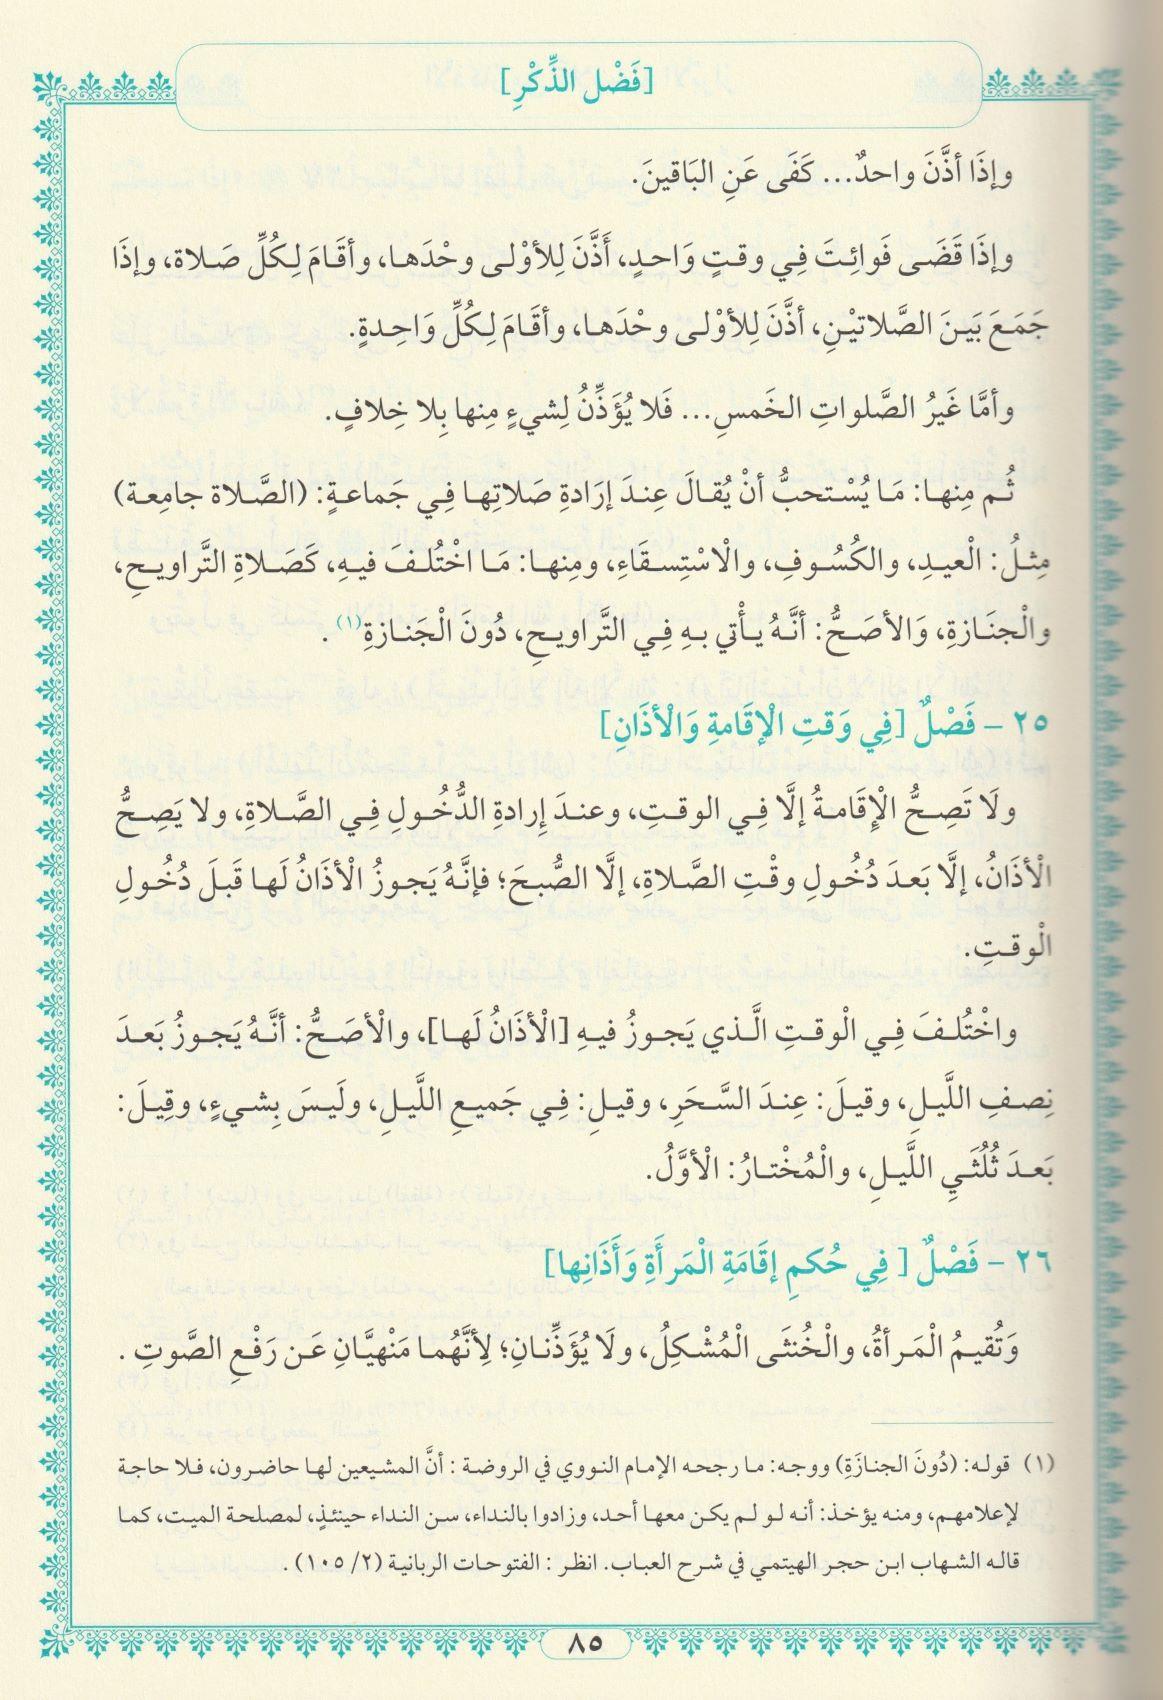 [فَضْل الذِّكْرِ]
وإذَا أذَّنَ واحدٌ... كَفَى عَنِ البَاقينَ.
وإذَا قَضَى فَوائِتَ فِي وقتٍ وَاحدٍ، أَذَّنَ لِلأوْلى وحْدَها، وأقَامَ لِكُلِّ صَلاة، وإذَا
جَمَعَ بَينَ الصَّلاتيْنِ، أذَّنَ لِلأوْلى وحْدَها، وأقَامَ لِكُلِّ وَاحِدةٍ.
وأمَّا غَيرُ الصَّلواتِ الخَمسِ... فَلا يُؤَذِّنُ لِشيءٍ مِنها بِلا خِلافٍ.
ثُم مِنها: مَا يُسْتحبُّ أنْ يُقالَ عِندَ إرَادةِ صَلاتِها فِي جَماعةٍ: (الصَّلاة جامِعة)
مِثلُ: الْعيدِ، والكُسُوفِ، والْاسْتِسقَاءِ، ومِنها: مَا اخْتُلفَ فيهِ، كَصَلاةِ التَّراويحِ،
والْجنَازةِ، وَالأصَحُّ: أنَّهُ يأْتي بهِ فِي التَّراويحِ، دُونَ الْجَنازةِ(١) .
٢٥ - فَصْلٌ [فِي وَقتِ الْإقَامةِ وَالْأذَانِ]
ولَا تَصِحُّ الْإِقَامةُ إلَّا فِي الوقتِ، وعندَ إرادةِ الدُّخُولِ فِي الصَّلاةِ، ولا يَصِحُّ
الْأذَانُ، إلَّا بَعدَ دُخُولِ وقْتِ الصَّلاةِ، إلَّا الصُّبحَ؛ فإنَّهُ يَجوزُ الْأذَانُ لَها قَبلَ دُخُولِ
الْوقتِ.
واخْتُلفَ فِي الْوقتِ الَّذي يَجوزُ فيهِ [الْأذَانُ لَها]، والْأصَحُّ: أنَّهُ يَجوزُ بَعدَ
نِصفِ اللَّيلِ، وقيلَ: عِندَ السَّحَرِ، وقيل: فِي جَميعِ اللَّيلِ، ولَيسَ بِشيءٍ، وقِيلَ:
بَعدَ ثُلُثَيِ اللَّيلِ، والْمُخْتارُ: الْأوَّلُ.
٢٦ - فَصْلٌ [ فِي حُكمِ إقَامَةِ الْمَرأَةِ وَأَذَانِها]
وَتُقيمُ الْمَرأةُ، والْخُنثَى الْمُشْكِلُ، ولَا يُؤَذِّنانِ؛ لِأنَّهُما مَنْهيَّانِ عَن رَفْعِ الصَّوتِ .
(١) قوله: (دُونَ الجنازَةِ) ووجه: ما رجحه الإمام النووي في الروضة : أنَّ المشيعين لها حاضرون، فلا حاجة
لإعلامهم، ومنه يؤخذ: أنه لو لم يكن معها أحد، وزادوا بالنداء، سن النداء حينئذٍ، لمصلحة الميت، كما
قاله الشهاب ابن حجر الهيتمي في شرح العباب. انظر : الفتوحات الربانية (٢/ ١٠٥) .
٨٥